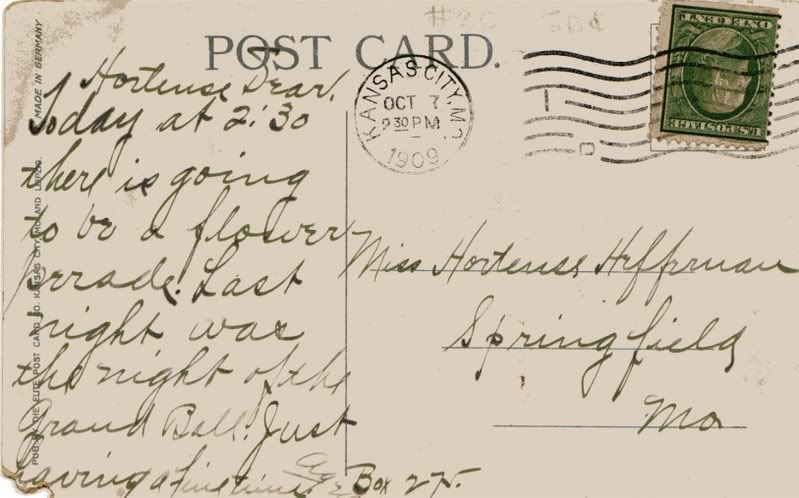 POST CARD.
MADE IN GERMANY
PUB. BY THE ELITE POST CARD CO. KANSAS CITY, MO. AND LEIPZIG.
KANSAS CITY, MO.
OCT 7
2 30 PM
1909
ONE CENT
U.S. POSTAGE
Hortense Dear.
Today at 2:30
there is going
to be a flower
perade. Last
night was
the night of the
Grand Ball. Just
having a fine time.
Miss Hortense Heffernan
Springfield
Mo
Box 275.